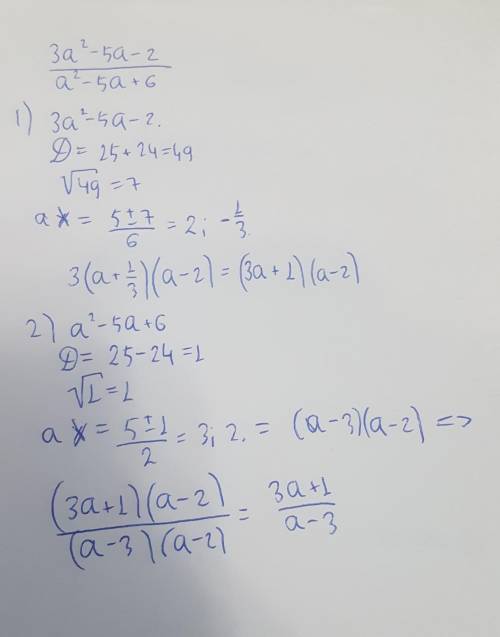 3a²-5a-2
a²-5a+6
1) 3a²-5a-2.
D = 25+24=49
√49 = 7
a = 5±7/6 = 2; -1/3.
3(a+1/3)(a-2) = (3a+1)(a-2)
2) a²-5a+6
D = 25-24=1
√1 = 1
a = 5±1/2 = 3; 2. = (a-3)(a-2) =>
(3a+1)(a-2)/(a-3)(a-2) = 3a+1/a-3